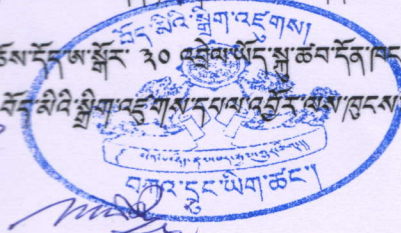 བོད་མིའི་སྒྲིག་འཛུགས།
ཆོས་དོད་ཨ་སྒོར་ ༣༠ འབྲེལ་ཡོད་སྐུ་ཚབ་དོན་ཁང
བོད་མིའི་སྒྲིག་འཛུགས་དཔལ་འབྱོར་ལས་ཁུངས་
བཀའ་དྲུང་ཡིག་ཚང་།